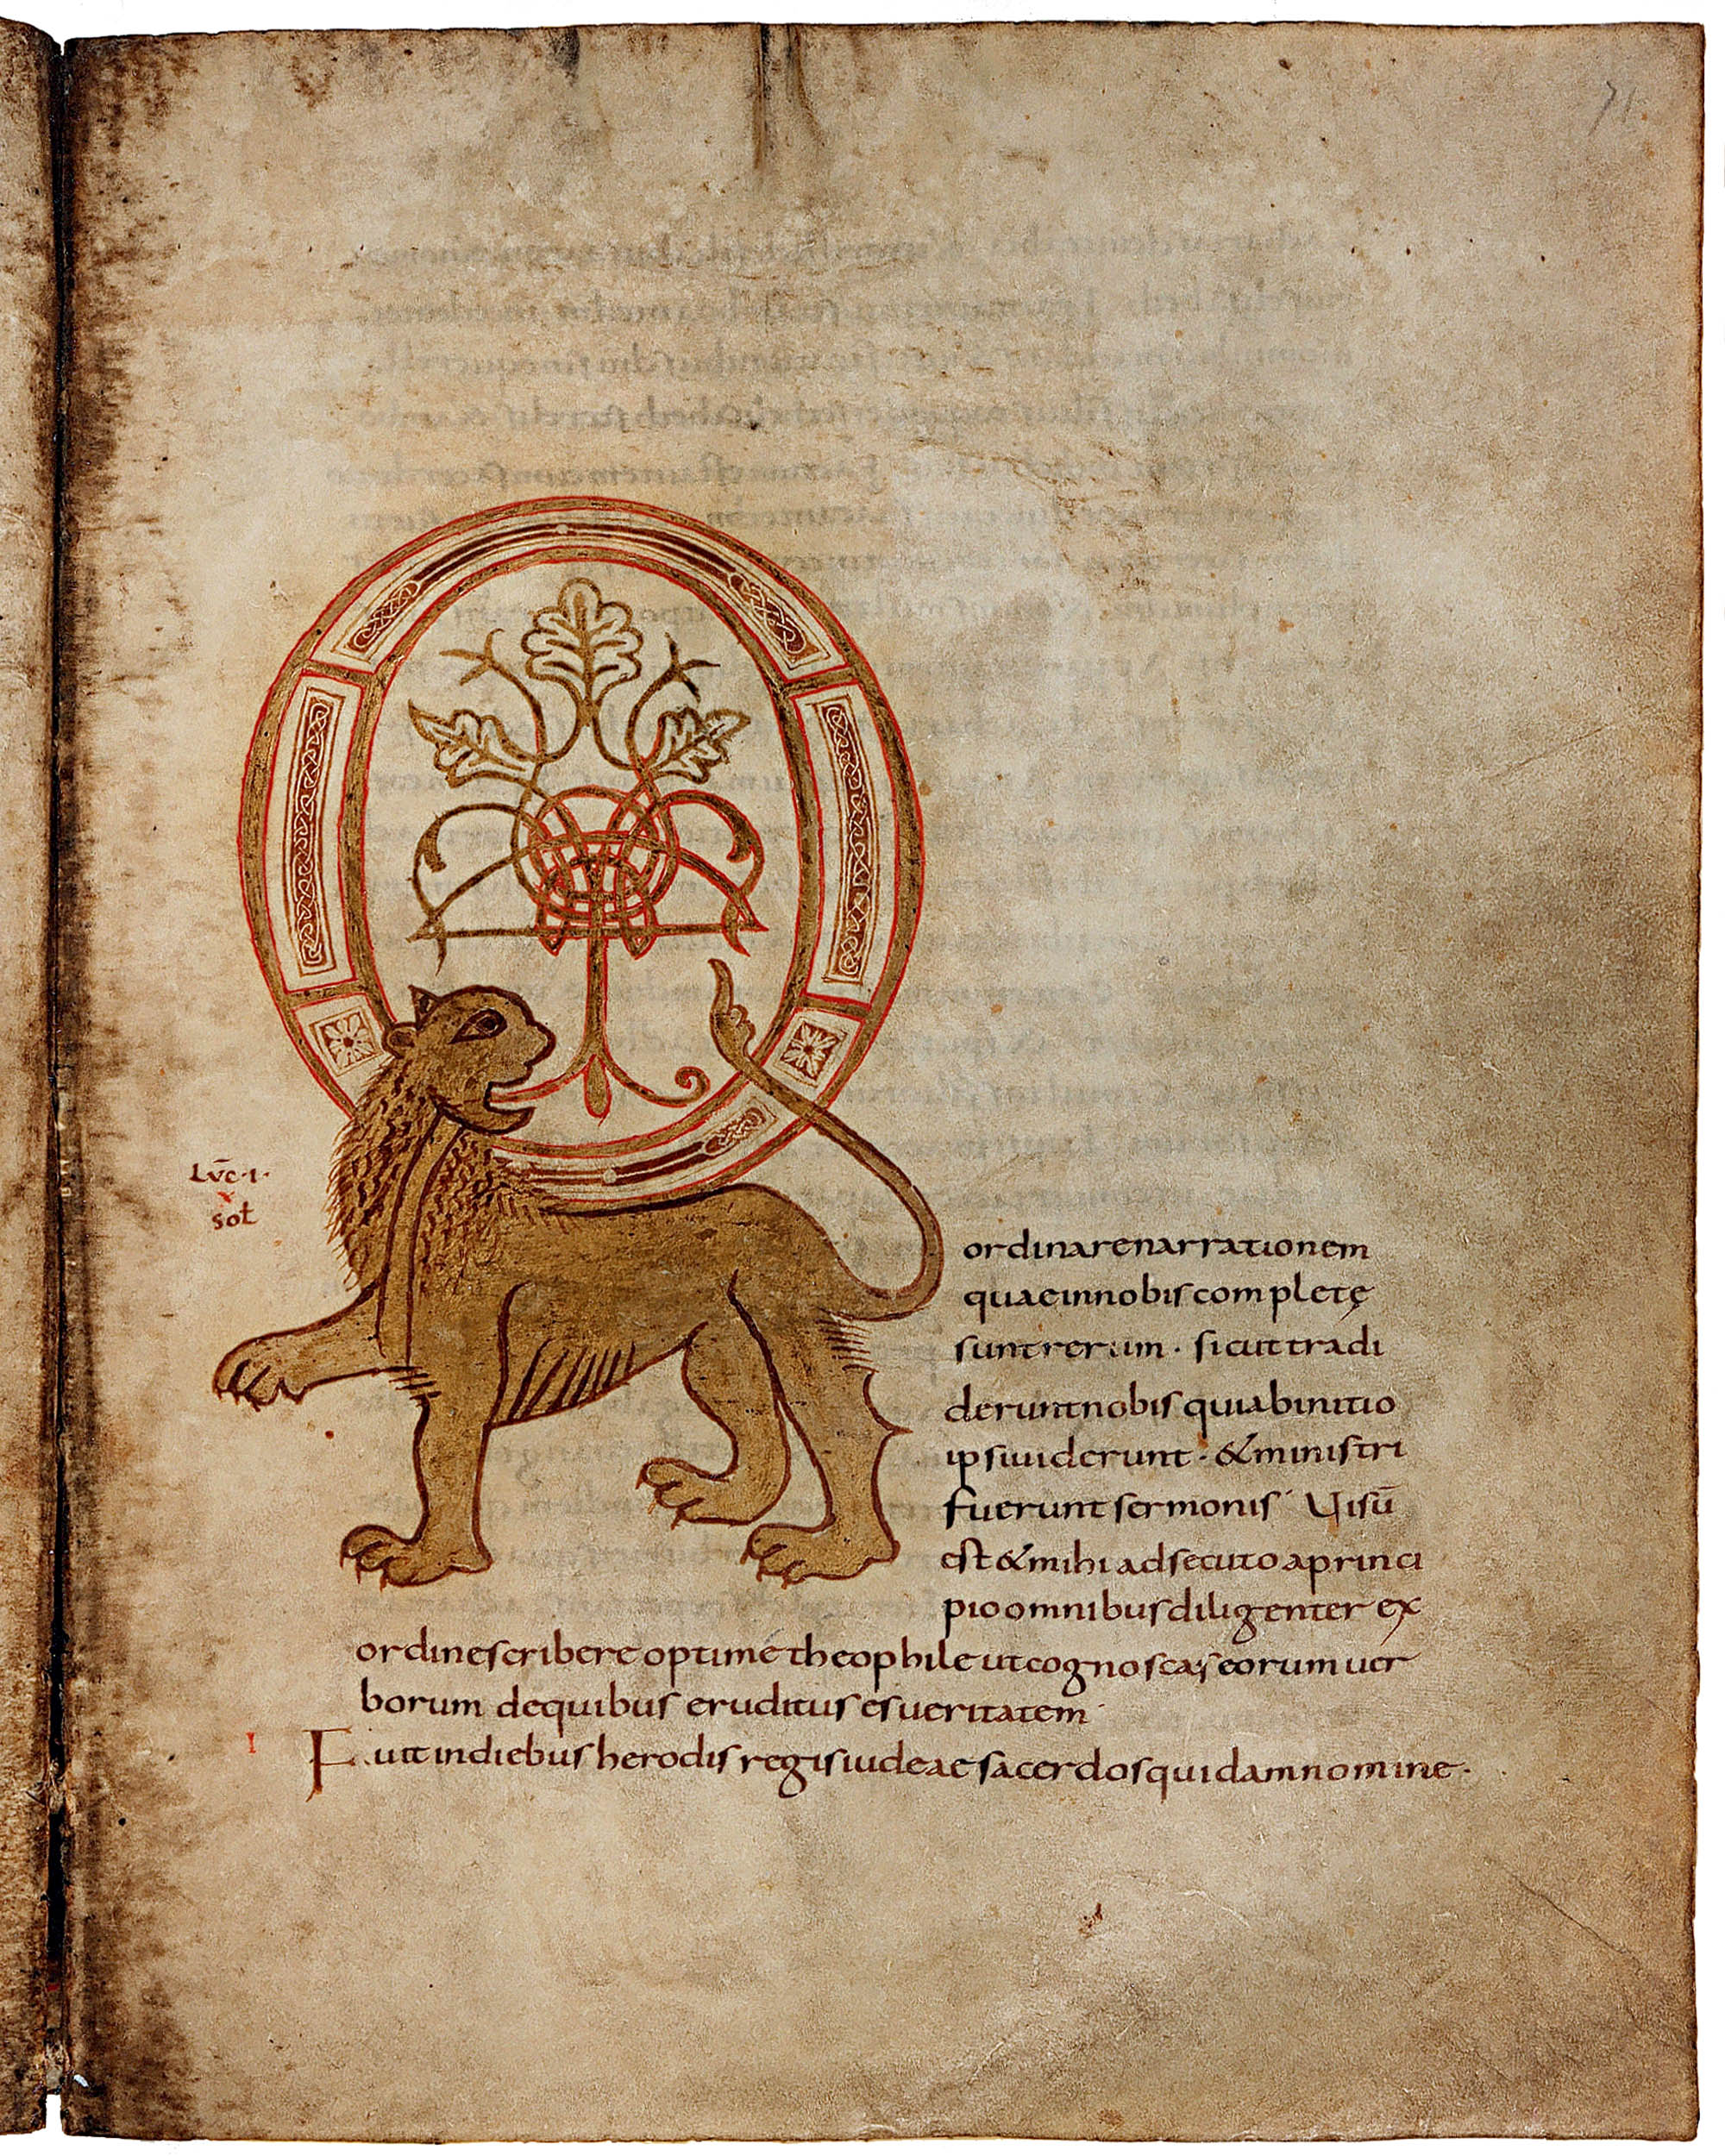 71
Q
Lūc·1·
sol
ordinarenarrationem
quaeinnobiscompletę
suntrerum· sicuttradi
deruntnobis quiabinitio
ipsiuiderunt·&ministri
fuerunt sermonis Uisū
est&mihi adsecuto aprinci
pioomnibusdiligenter ex
ordinescribere optime theophile utcognoscaseorum uer
borum dequibus eruditus esueritatem
I Fuitindiebus herodis regisiudeae sacerdosquidamnomine·